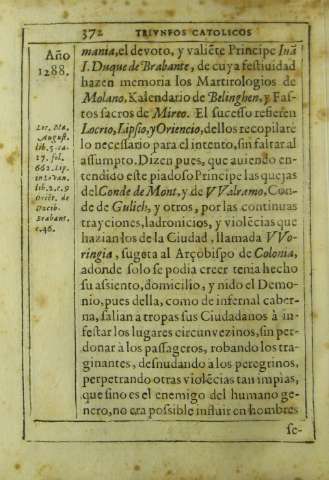 372 TRIVNFOS CATOLICOS
Año
1288.
mania, el devoto, y valiẽte Principe Iuã
I. Duque de Brabante, de cuya festiuidad
hazen memoria los Martirologios de
Molano, Kalendario de Belinghen, y Fas-
tos sacros de Mireo. El sucesso refieren
Locrio, Lipsio, y Oriencio, dellos recopilare
lo necessario para el intento, sin faltar al
assumpto. Dizen pues, que auiendo en-
tendido este piadoso Principe las quejas
del Conde de Mont, y de VValramo, Con-
de de Gulich, y otros, por las continuas
trayciones, ladronicios, y violẽcias que
hazian los de la Ciudad, llamada VVo-
ringia, sugeta al Arçobispo de Colonia,
adonde solo se podia creer tenia hecho
su assiento, domicilio, y nido el Demo-
nio, pues della, como de infernal caber-
na, salian a tropas sus Ciudadanos à in-
festar los lugares circunvezinos, sin per-
donar à los passageros, robando los tra-
ginantes, desnudando à los peregrinos,
perpetrando otras violẽcias tan impias,
que sino es el enemigo del humano ge-
nero, no era possible influir en hombres
se-
August.
lib. 5. ca-
27. fol.
662. Lip.
in Lovan.
lib. 2. c. 9
de
Brabant.
c. 46.